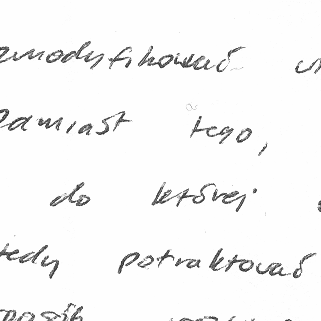 zmodyfikować
Zamiast tego,
do której
tedy potraktować
sposób